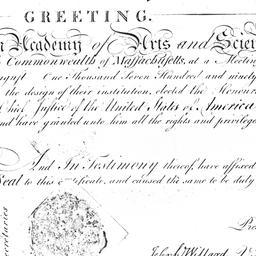 GREETING.
Academy of Arts and Scien
Commonwealth of Massachusetts, at a Meeting
One Thousand Seven Hundred and ninety
the design of their institution, elected the Honour
Chief Justice of the United States of America
and have granted unto him all the rights and privilege
And In Testimony thereof, have affixed
Seal to this certificate, and caused the same to be duly
Pres
Joseph Willard
ecretaries